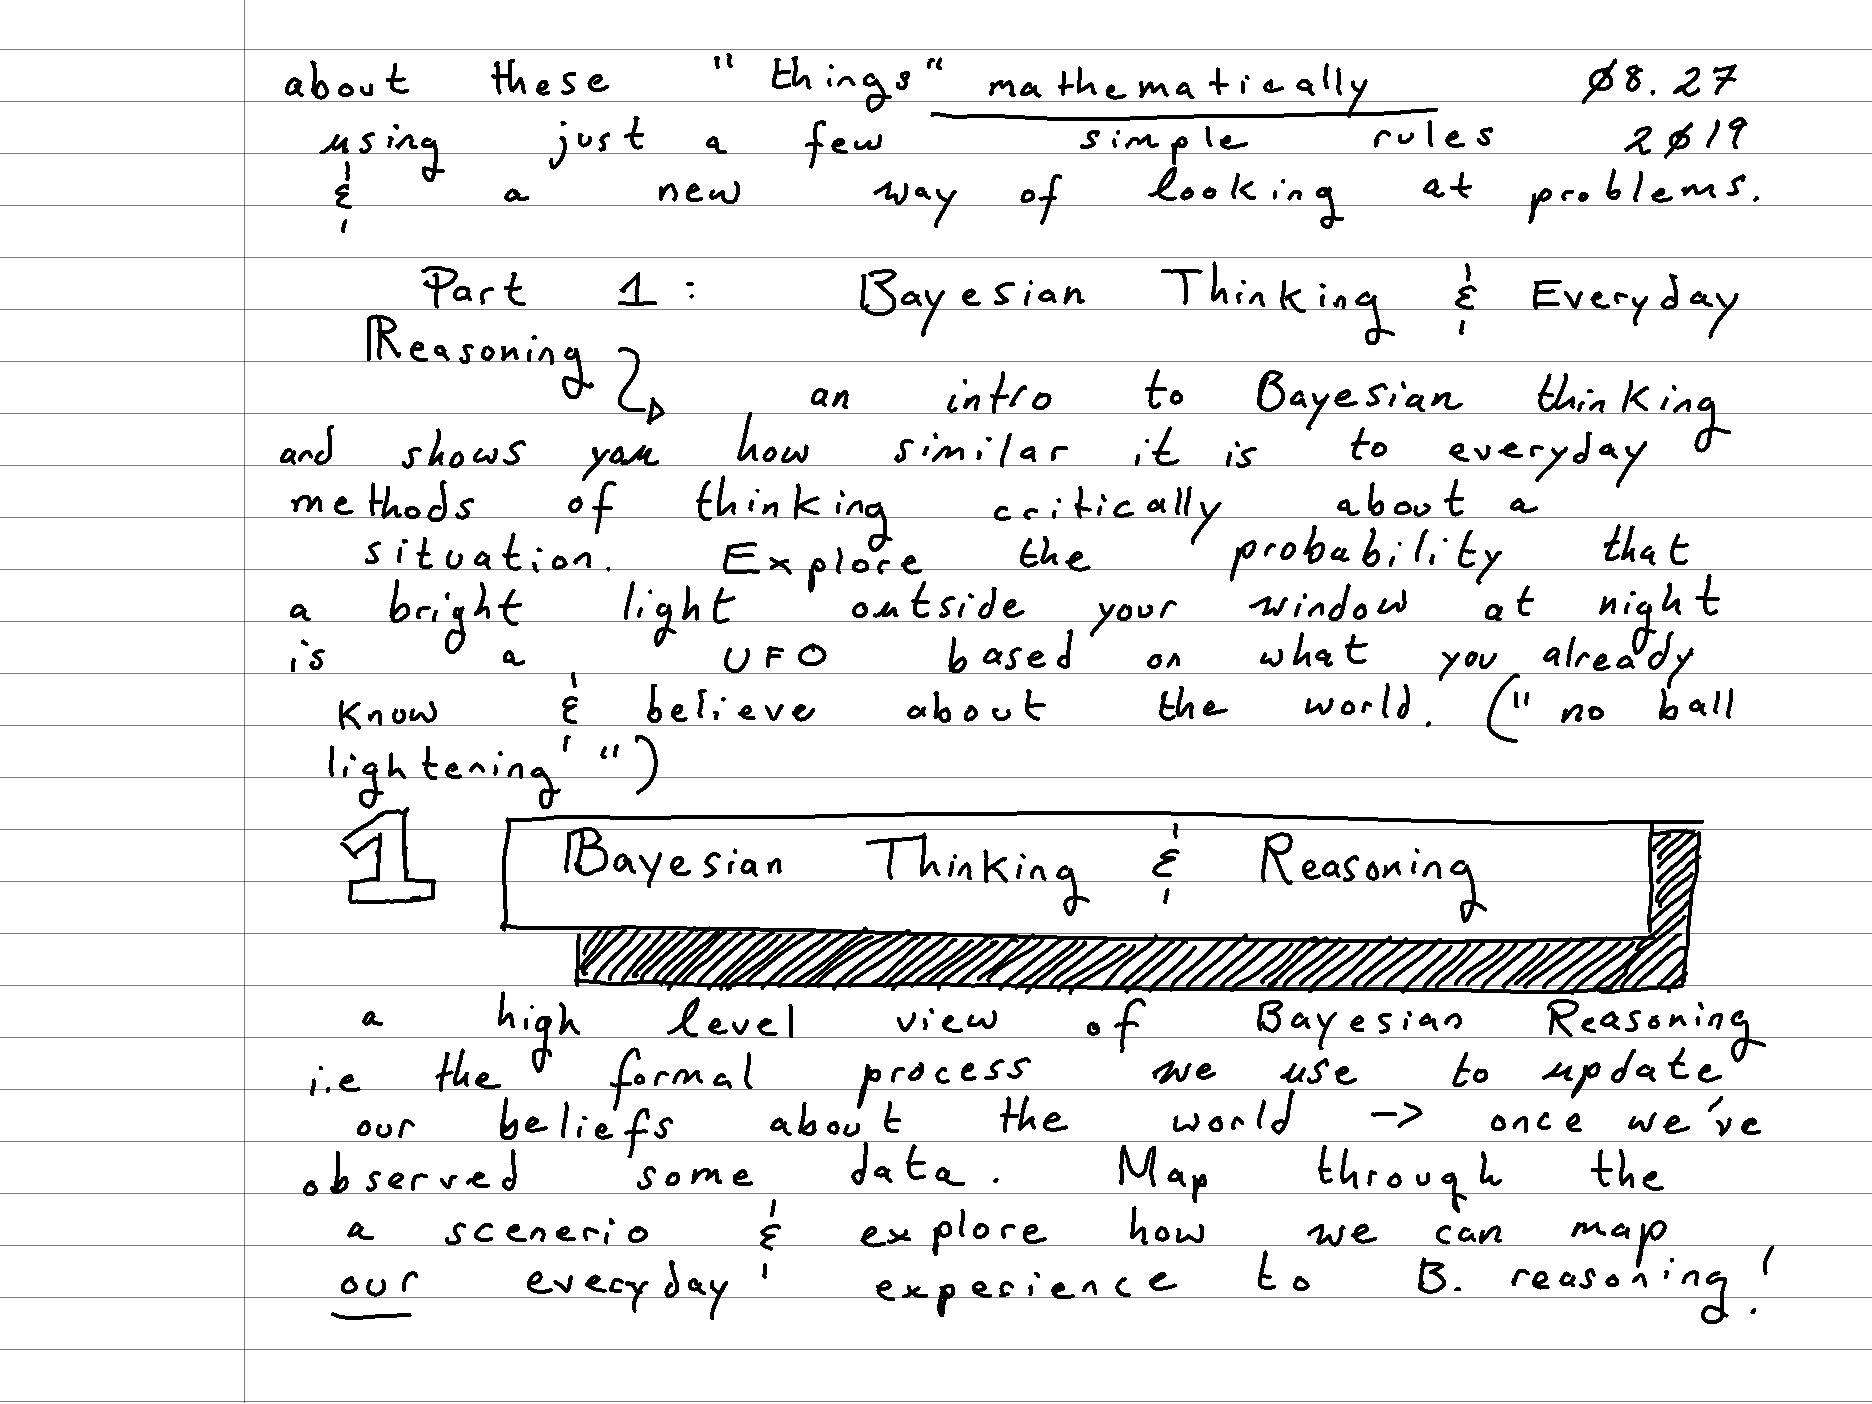 about these "things" mathematically Ø8.27
using just a few simple rules 2Ø19
& a new way of looking at problems.
Part 1: Bayesian Thinking & Everyday
Reasoning
an intro to Bayesian thinking
and shows you how similar it is to everyday
methods of thinking critically about a
situation. Explore the probability that
a bright light outside your window at night
is a UFO based on what you already
know & believe about the world. ("no ball
lightening")
1 Bayesian Thinking & Reasoning
a high level view of Bayesian Reasoning
i.e the formal process we use to update
our beliefs about the world -> once we've
observed some data. Map through the
a scenerio & explore how we can map
our everyday experience to B. reasoning!